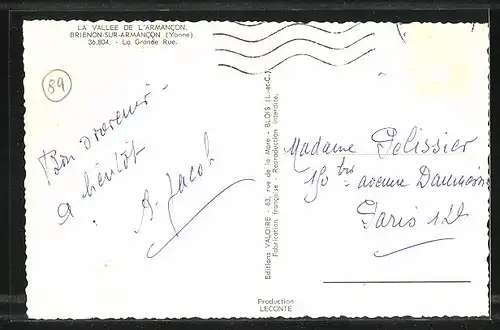 LA VALLEE DE L'ARMANÇON.
BRIENON-SUR-ARMANÇON (Yonne)
36.804. - La Grande Rue.
89
Bon souvenir -
A bientôt
A. Jacob
Editions VALOIRE - 63, rue de la Mare - BLOIS (L.-et-C.)
Fabrication française - Reproduction interdite.
Madame Pelissier
bis avenue Daumesnil
Paris 12e
Production
LECONTE